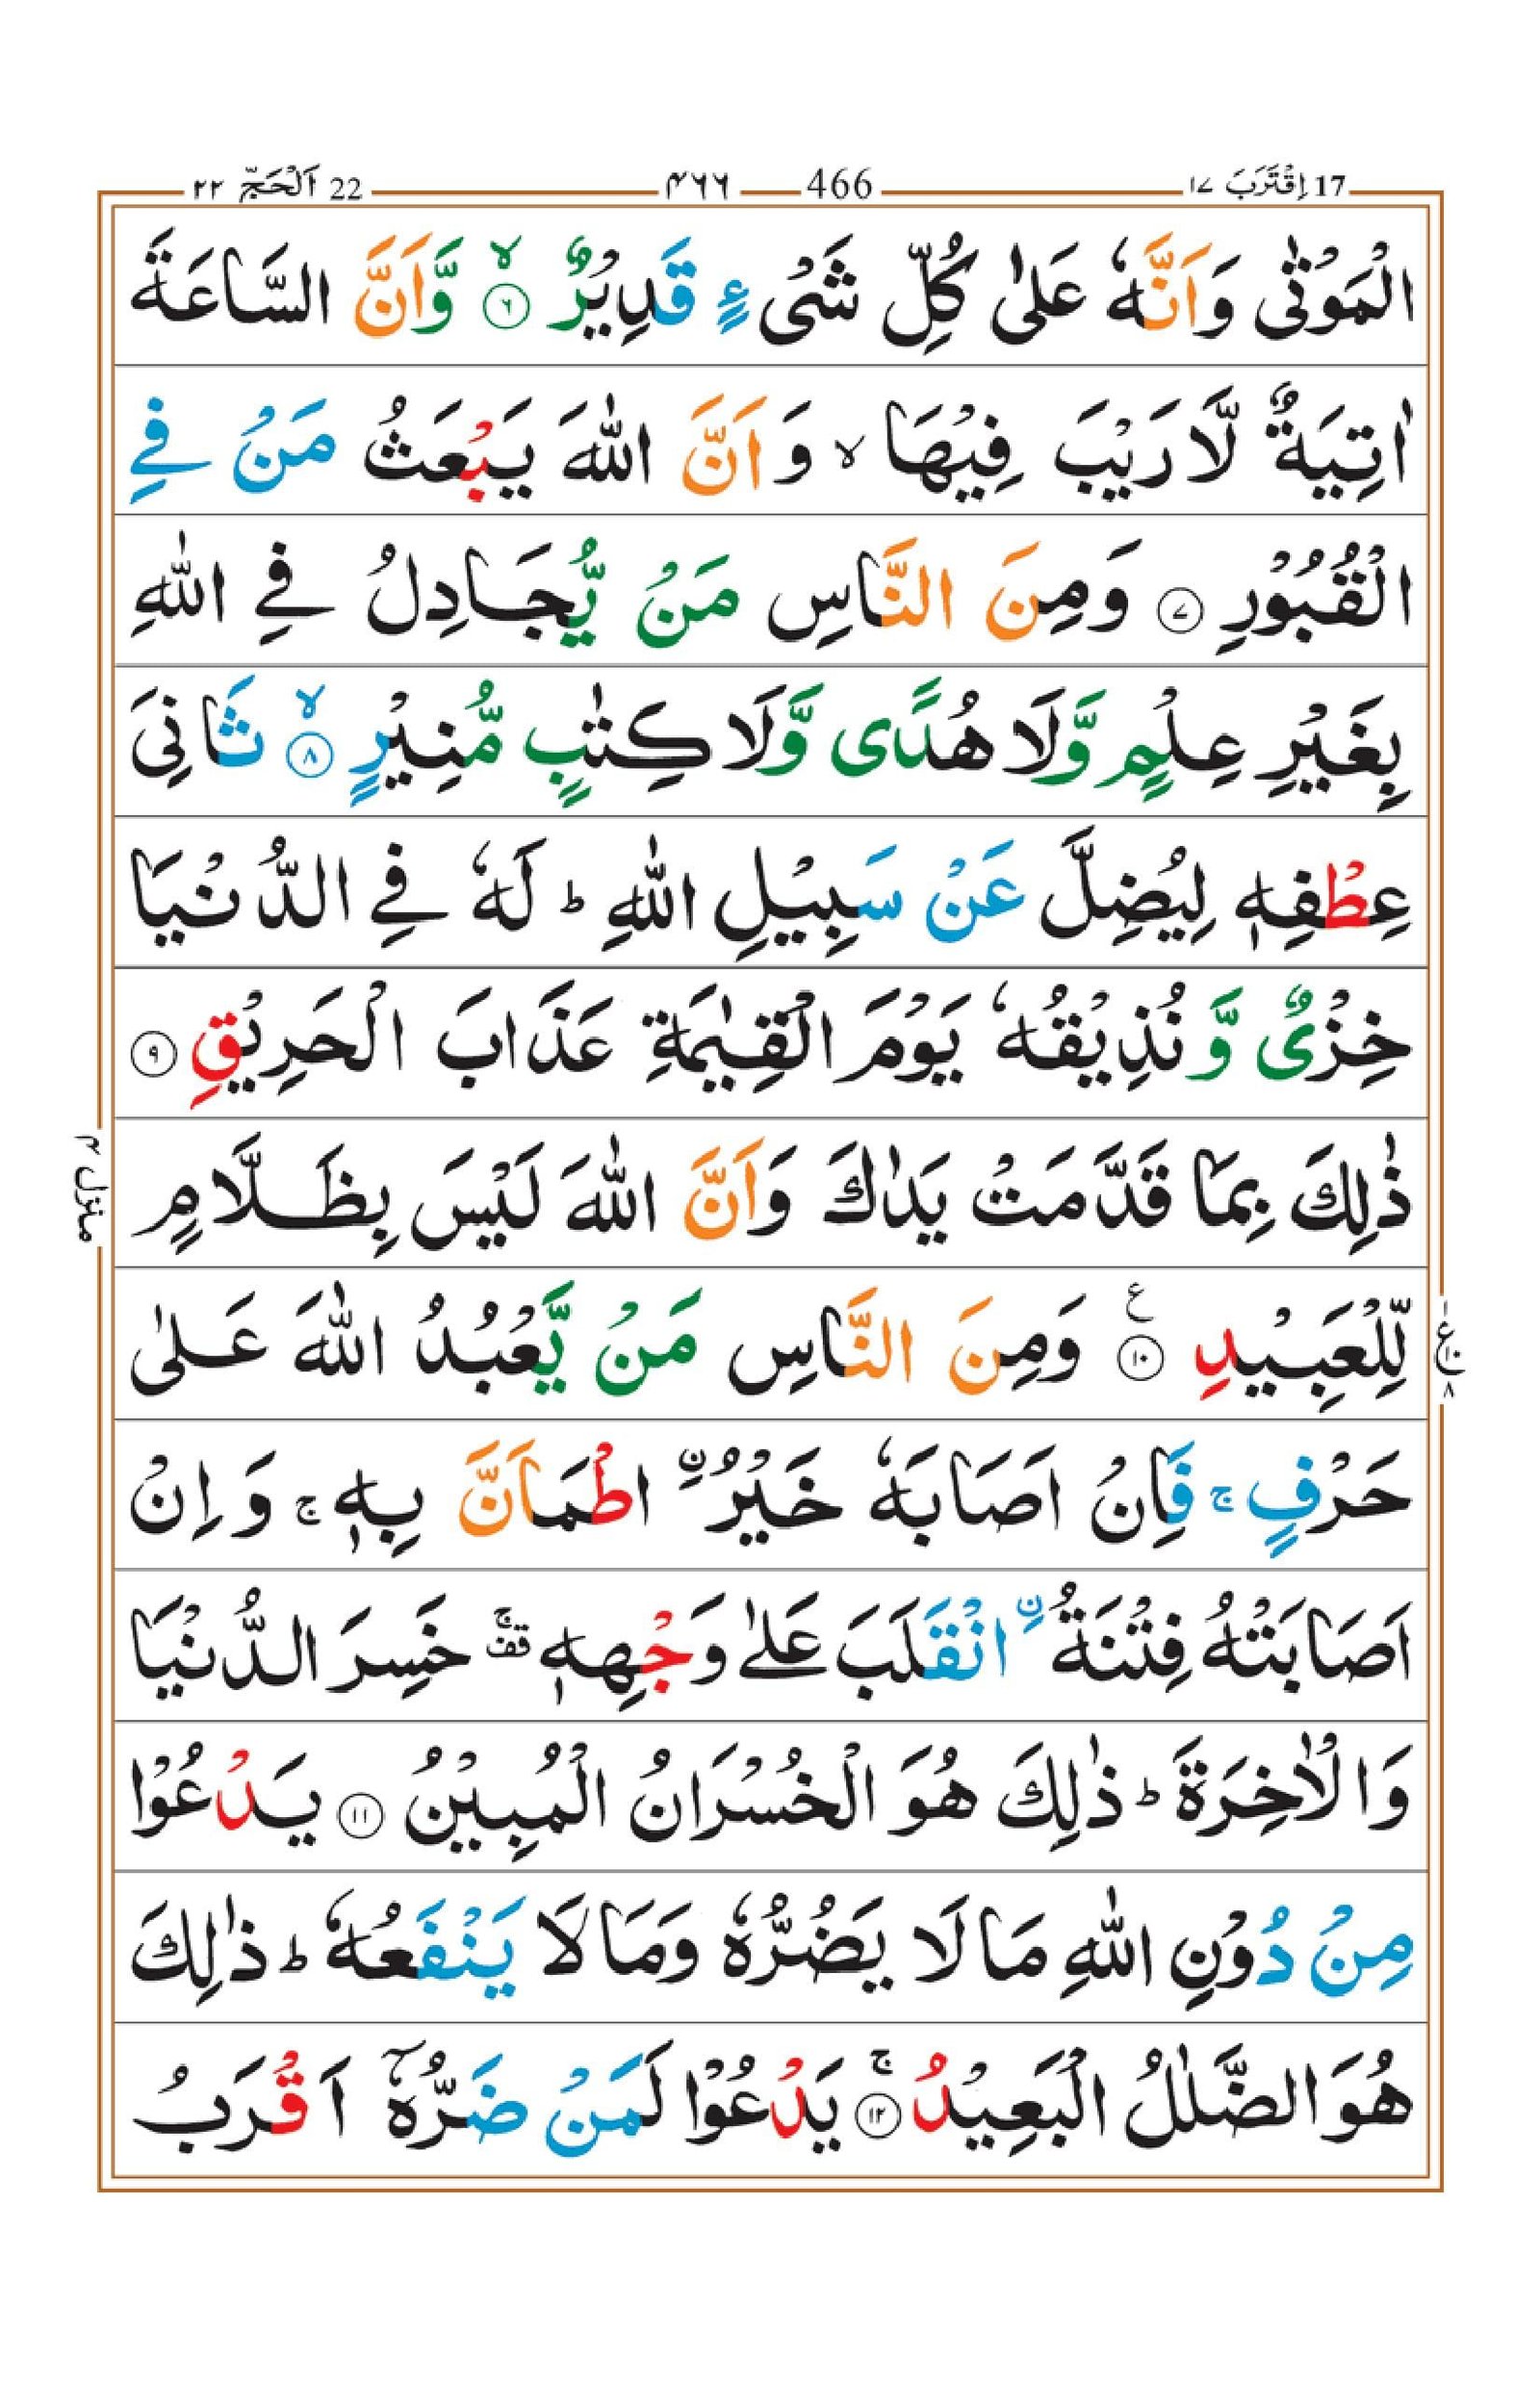 17 اِقْتَرَبَ ١٧ 466 ۴۶۶ 22 اَلْحَجّ ٢٢
الْمَوْتٰى وَاَنَّهٗ عَلٰى كُلِّ شَیْءٍ قَدِيْرٌ ۙ‏﴿۶﴾ وَّاَنَّ السَّاعَةَ
اٰتِيَةٌ لَّا رَيْبَ فِيْهَا ۙ وَاَنَّ اللّٰهَ يَبْعَثُ مَنْ فِی
الْقُبُوْرِ ﴿۷﴾ وَمِنَ النَّاسِ مَنْ يُّجَادِلُ فِی اللّٰهِ
بِغَيْرِ عِلْمٍ وَّلَا هُدًى وَّلَا كِتٰبٍ مُّنِيْرٍ ۙ﴿۸﴾ ثَانِیَ
عِطْفِهٖ لِيُضِلَّ عَنْ سَبِيْلِ اللّٰهِ ؕ لَهٗ فِی الدُّنْيَا
خِزْیٌ وَّنُذِيْقُهٗ يَوْمَ الْقِيٰمَةِ عَذَابَ الْحَرِيْقِ ﴿۹﴾
ذٰلِكَ بِمَا قَدَّمَتْ يَدٰكَ وَاَنَّ اللّٰهَ لَيْسَ بِظَلَّامٍ
لِّلْعَبِيْدِ ﴿۱۰﴾ ع وَمِنَ النَّاسِ مَنْ يَّعْبُدُ اللّٰهَ عَلٰى
حَرْفٍ ۚ فَاِنْ اَصَابَهٗ خَيْرُ ۨ اطْمَاَنَّ بِهٖ ۚ وَاِنْ
اَصَابَتْهُ فِتْنَةُ ۨ انْقَلَبَ عَلٰى وَجْهِهٖ ۚقف خَسِرَ الدُّنْيَا
وَالْاٰخِرَةَ ؕ ذٰلِكَ هُوَ الْخُسْرَانُ الْمُبِيْنُ ﴿۱۱﴾ يَدْعُوْا
مِنْ دُوْنِ اللّٰهِ مَا لَا يَضُرُّهٗ وَمَا لَا يَنْفَعُهٗ ؕ ذٰلِكَ
هُوَ الضَّلٰلُ الْبَعِيْدُ ۚ﴿۱۲﴾ يَدْعُوْا لَمَنْ ضَرُّهٗۤ اَقْرَبُ
منزل ۴
ع ۱۰ ۸